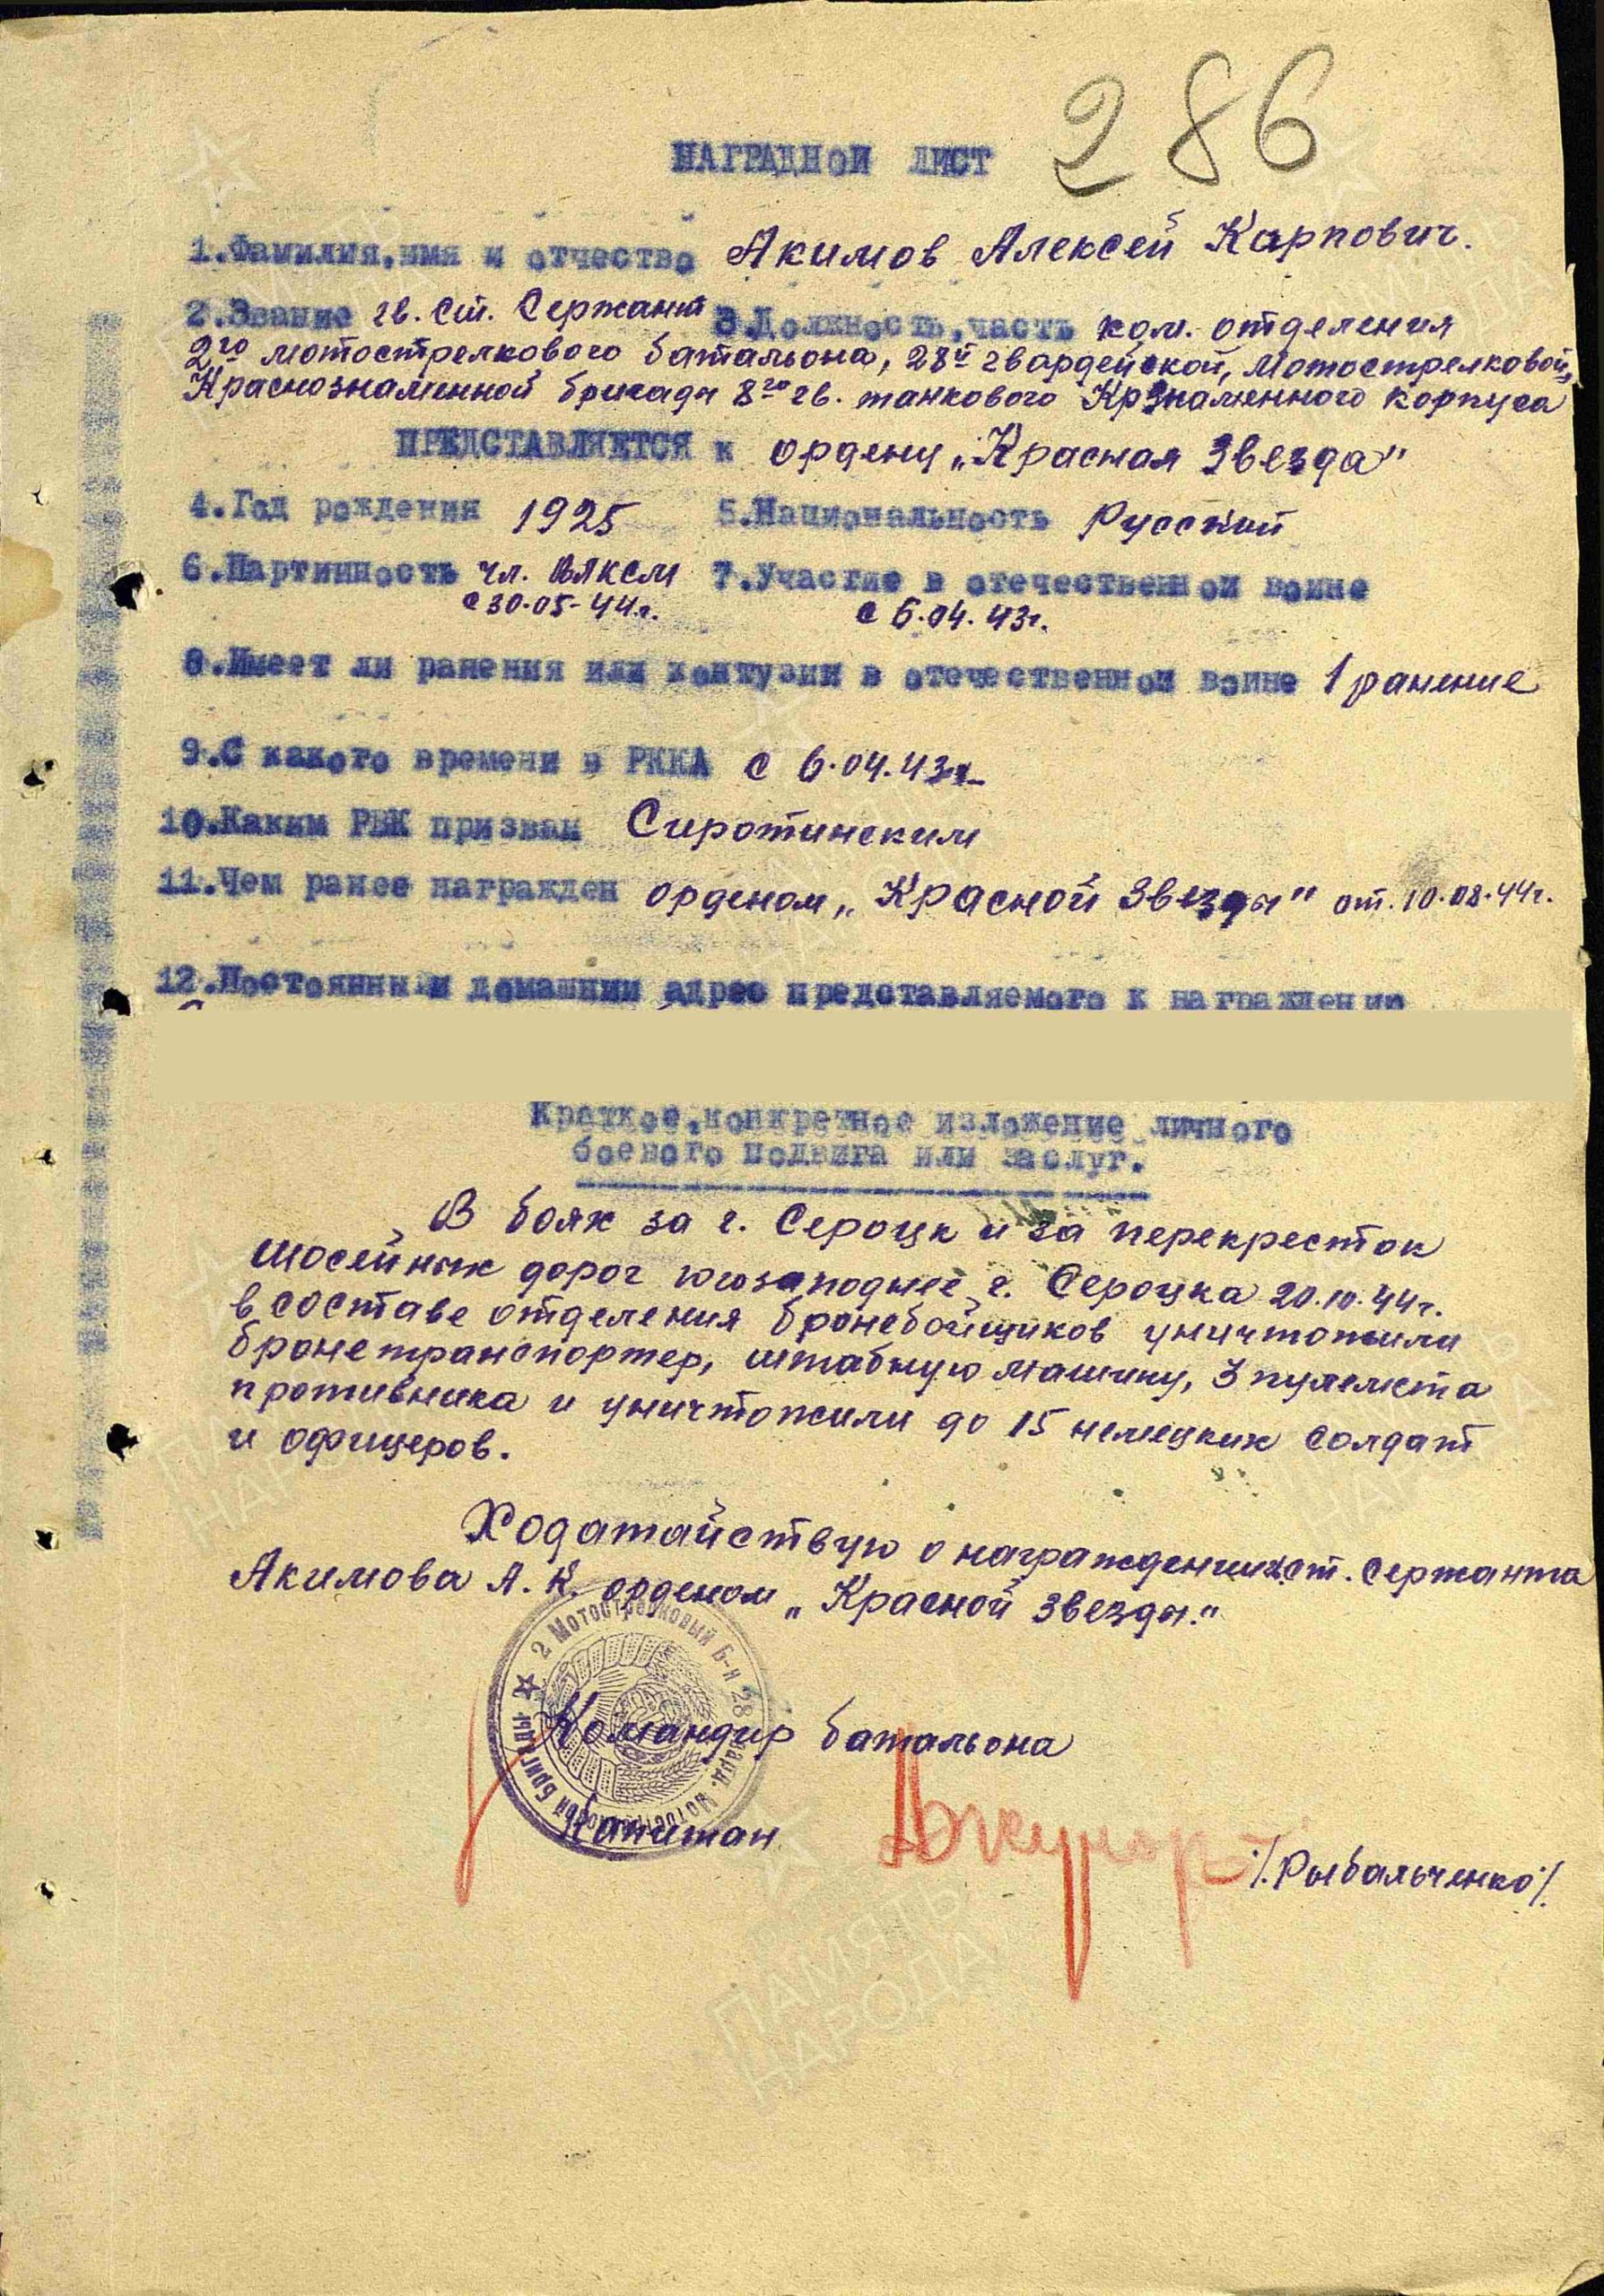 286
НАГРАДНОЙ ЛИСТ
1.Фамилия,имя и отчество Акимов Алексей Карпович.
2.Звание гв. Ст. Сержант 3.Должность,часть ком. отделения
2го мотострелкового батальона, 28й гвардейской, Мотострелковой,
Краснознаменной бригады 8го гв. танкового Кр Знаменного корпуса
ПРЕДСТАВЛЯЕТСЯ к ордену „Красная Звезда"
4.Год рождения 1925 5.Национальность Русский
6.Партийность чл. ВЛКСМ 7.Участие в отечественной войне
с 30.05-44г. с 6.04.43г.
8.Имеет ли ранения или контузии в отечественной войне 1 ранение
9.С какого времени в РККА с 6.04.43г.
10.Каким РВК призван Сиротинским
11.Чем ранее награжден орденом „Красной Звезды" от.10.08.44г.
12.Постоянный домашний адрес представляемого к награждению
Краткое,конкретное изложение личного
боевого подвига или заслуг.
В боях за г. Сероцк и за перекресток
шосейных дорог югозападнее г. Сероцка 20.10.44г.
в составе отделения бронебойщиков уничтожили
бронетранспортер, штабную машину, 3 пулемета
противника и уничтожили до 15 немецких солдат
и офицеров.
Ходатайствую о награждении гв. ст. Сержанта
Акимова А. К. орденом „Красной Звезды."
2 Мотострелковый Б-н 28 Гвард. Мотострелковой Бригады
Командир батальона
Капитан /.Рыбальченко/.
ПАМЯТЬ НАРОДА